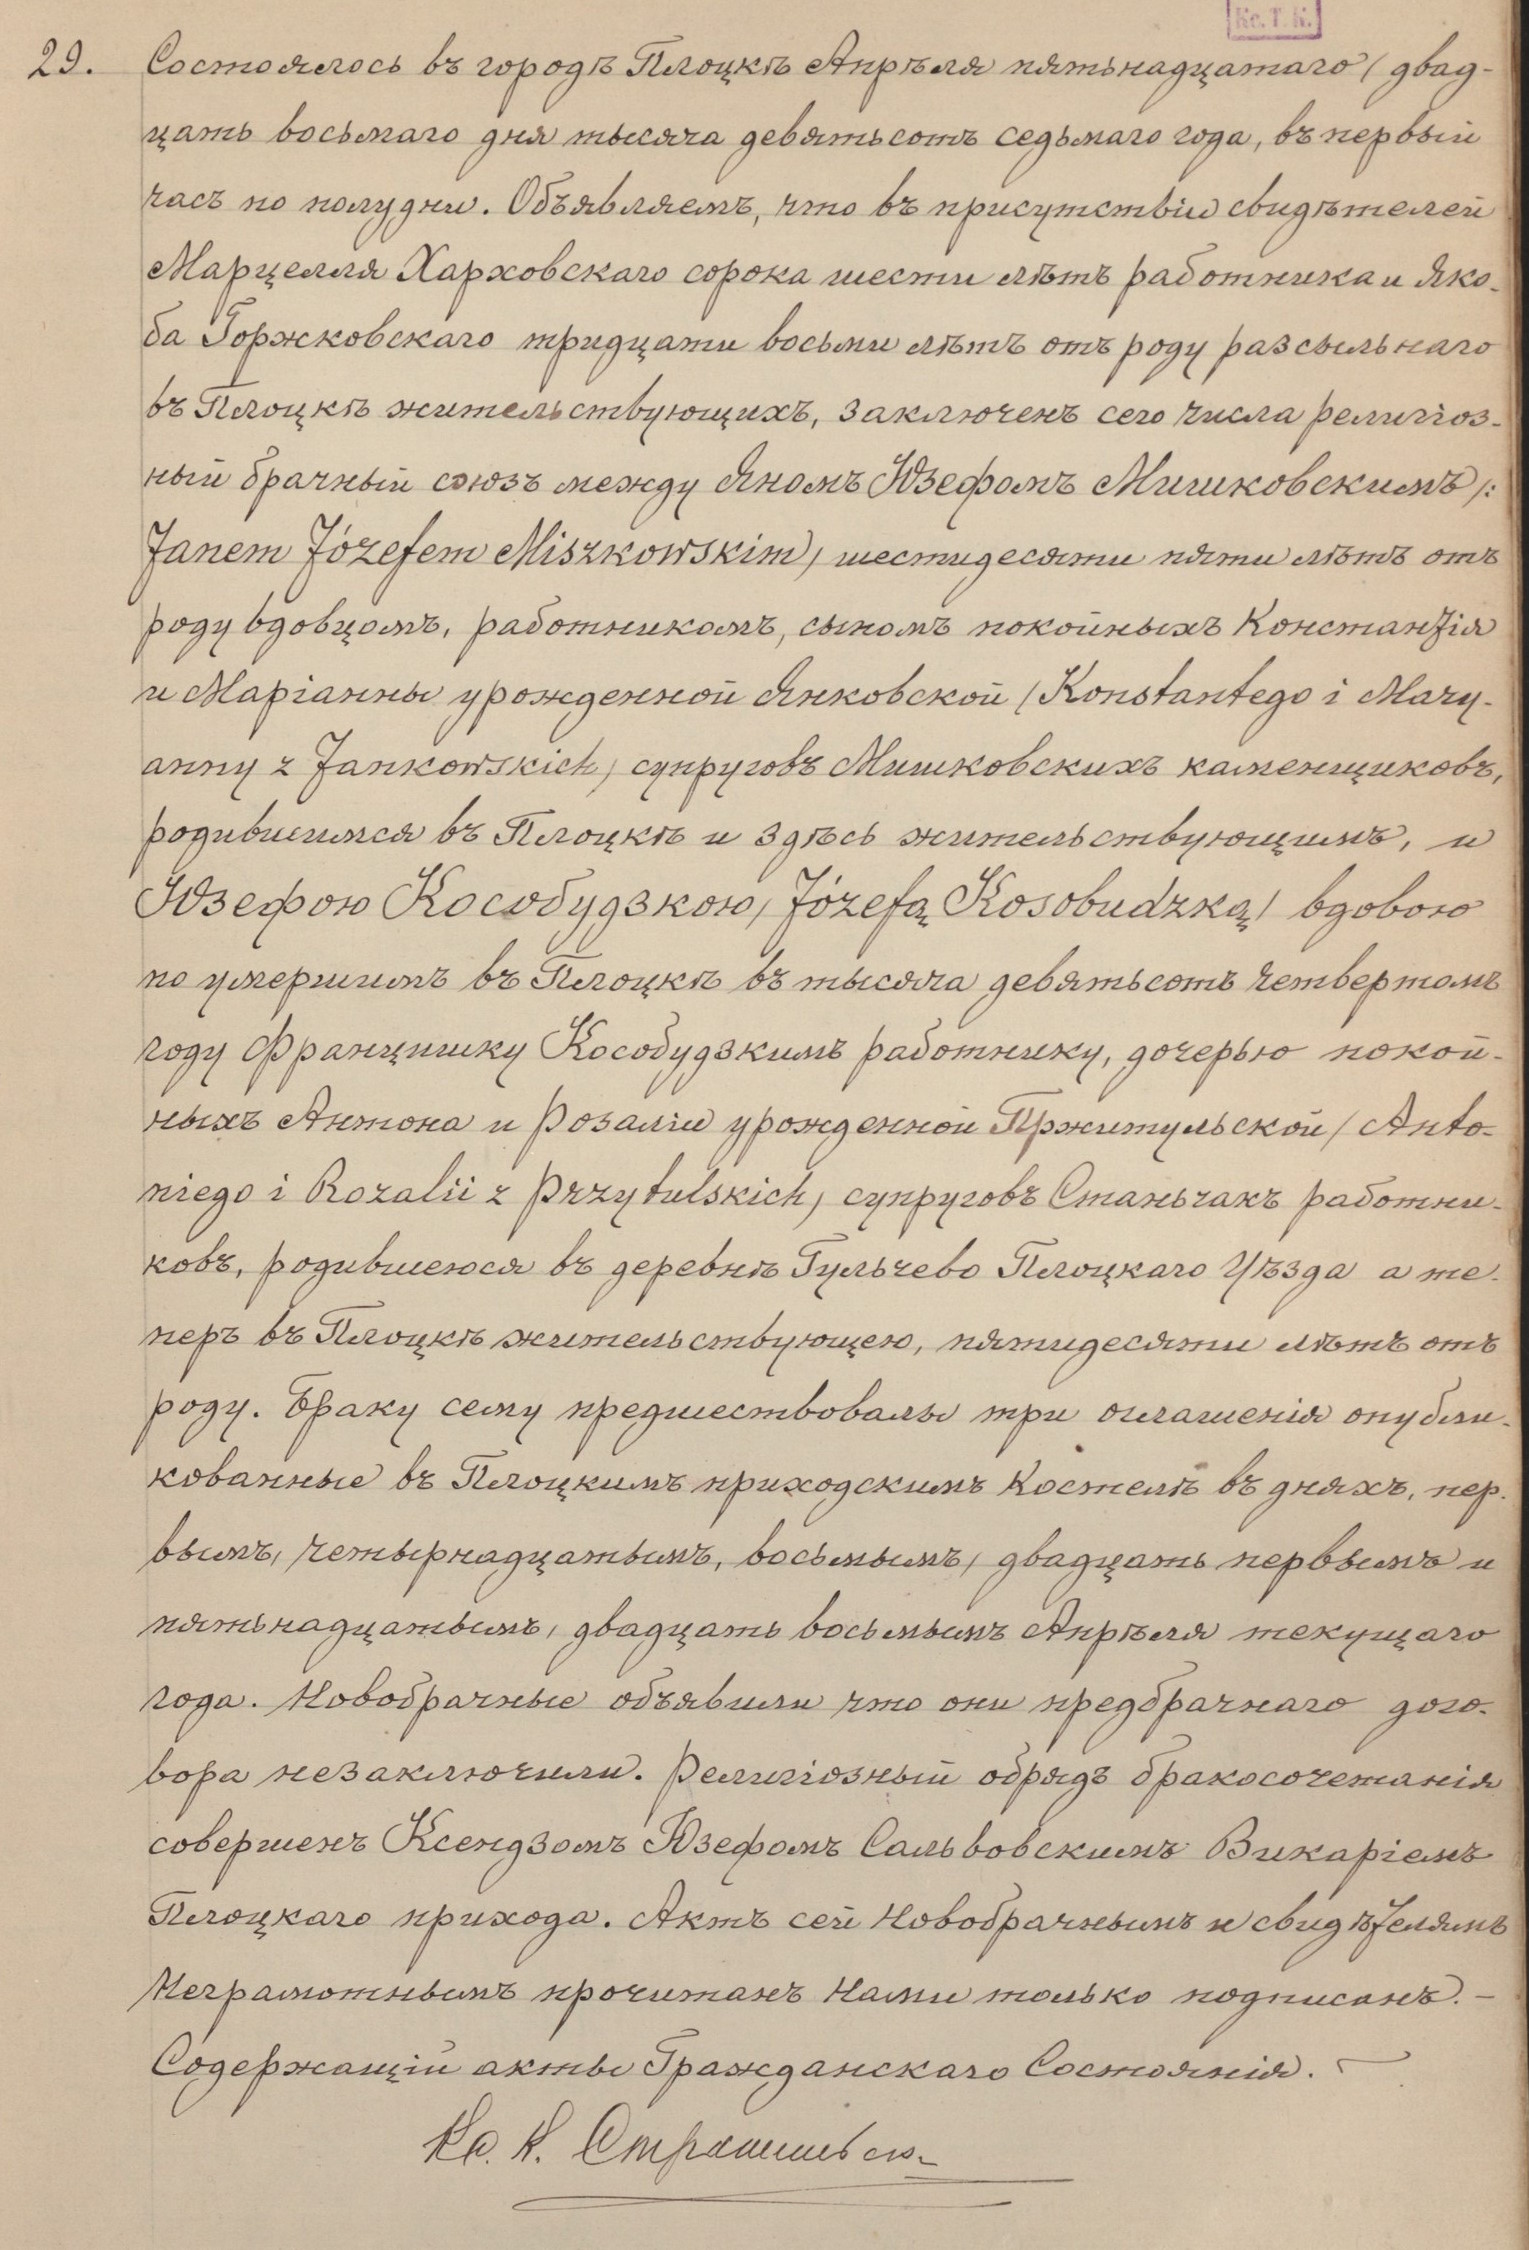 Кс. Т. К.
29. Состоялось въ городѣ Плоцкѣ Апрѣля пятьнадцатаго / двад-
цать восьмаго дня тысяча девятьсотъ седьмаго года, въ первый
часъ по полудни. Объявляемъ, что въ присутствіи свидѣтелей
Марцелля Харховскаго сорока шести лѣтъ работника и Яко-
ба Горжковскаго тридцати восьми лѣтъ отъ роду разсыльнаго
въ Плоцкѣ жительствующихъ, заключенъ сего числа религіоз-
ный брачный союзъ между Яномъ Юзефомъ Мишковскимъ /:
Janem Józefem Miszkowskim / шестидесяти пяти лѣтъ отъ
роду вдовцомъ, работникомъ, сыномъ покойныхъ Константія
и Маріанны урожденной Янковской / Konstantego i Mary-
anny z Jankowskich / супруговъ Мишковскихъ каменщиковъ,
родившимся въ Плоцкѣ и здѣсь жительствующимъ, и
Юзефою Кособудзкою / Józefą Kosobudzką / вдовою
по умершимъ въ Плоцкѣ въ тысяча девятьсотъ четвертомъ
году Францишку Кособудзкимъ работнику, дочерью покой-
ныхъ Антона и Розаліи урожденной Пржитульской / Anto-
niego i Rozalii z Przytulskich / супруговъ Станьчакъ работни-
ковъ, родившеюся въ деревнѣ Гульчево Плоцкаго Уѣзда а те-
перъ въ Плоцкѣ жительствующею, пятидесяти лѣтъ отъ
роду. Браку сему предшествовалы три оглашенія опубли-
кованные въ Плоцкимъ приходскимъ Костелѣ въ дняхъ, пер-
вымъ, четырнадцатымъ, восьмымъ, двадцать первымъ и
пятьнадцатымъ, двадцать восьмымъ Апрѣля текущаго
года. Новобрачные объявили что они предбрачнаго дого-
вора незаключили. Религіозный обрядъ бракосочетанія
совершенъ Ксендзомъ Юзефомъ Сальвовскимъ Викаріемъ
Плоцкаго прихода. Актъ сей Новобрачнымъ и свидѣтелямъ
Неграмотнымъ прочитанъ Нами только подписанъ. -
Содержащій акты Гражданскаго Состоянія.
Кс. К.